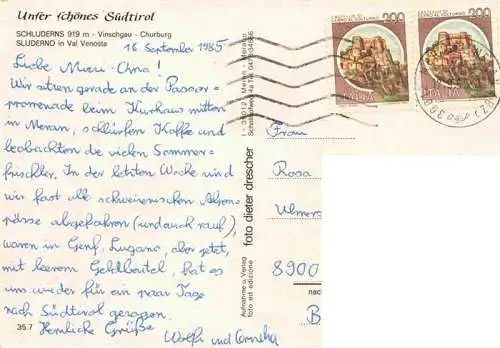 Unser schönes Südtirol
SCHLUDERNS 919 m - Vinschgau - Churburg
SLUDERNO in Val Venosta
16 September 1985
Liebe Omi!
Wir sitzen gerade an der Passer-
promenade beim Kurhaus mitten
in Meran, schlürfen Kaffe und
beobachten die vielen Sommer-
frischler. In der letzten Woche sind
wir fast alle schweizerischen Alpen-
pässe abgefahren (und auch rauf),
waren in Genf, Lugano, aber jetzt,
mit leerem Geldbeutel, hat es
uns wieder für ein paar Tage
nach Südtirol gezogen.
Herzliche Grüße
Wolfi und Cornelia
35.7
Aufnahme u. Verlag
foto ed edizione
foto dieter drescher
I-39012 Meran - Merano
200
ITALIA
200
ITALIA
Frau
Rosa
Ulmers
8900
nac
B